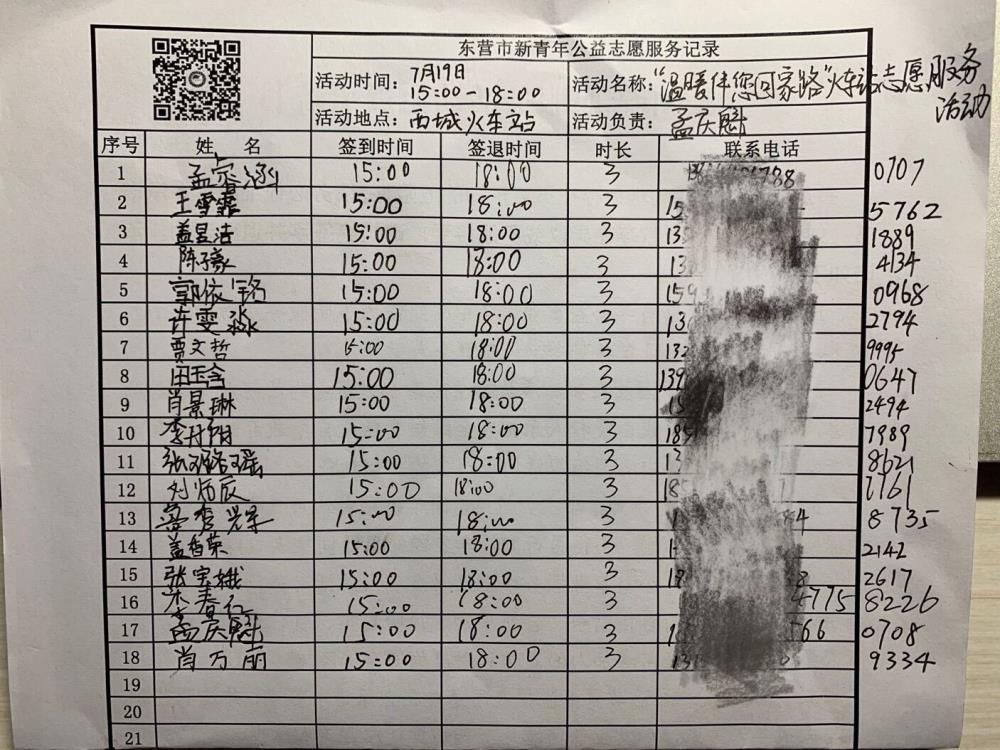 东营市新青年公益志愿服务记录
活动时间： 7月19日 15:00-18:00 活动名称： "温暖伴您回家路"火车站志愿服务活动
活动地点： 西城火车站 活动负责： 孟庆魁
序号 姓 名 签到时间 签退时间 时长 联系电话
1 孟睿涵 15:00 18:00 3 0707
2 王雪霏 15:00 18:00 3 15 5762
3 盖昱洁 15:00 18:00 3 13 1889
4 陈子豪 15:00 18:00 3 13 4134
5 郭依铭 15:00 18:00 3 159 0968
6 许雯淼 15:00 18:00 3 13 2794
7 贾文哲 15:00 18:00 3 132 9995
8 田玉含 15:00 18:00 3 139 0647
9 肖景琳 15:00 18:00 3 15 2494
10 李丹阳 15:00 18:00 3 185 7989
11 张璐瑶 15:00 18:00 3 13 8621
12 刘炳辰 15:00 18:00 3 18 1161
13 15:00 18:00 3 4 8735
14 盖香荣 15:00 18:00 3 2142
15 张宝娥 15:00 18:00 3 18 8 2617
16 春 15:00 18:00 3 4775 8226
17 孟庆魁 15:00 18:00 3 566 0708
18 肖万丽 15:00 18:00 3 9334
19
20
21